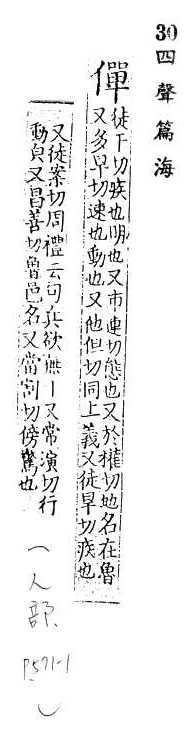 30四聲篇海
僤
徒下切疾也明也又市連切態也又於權切地名在魯
又多早切速也動也又他但切同上義又徒旱切疾也
又徒案切周禮云句兵欲無丨又常演切行
動皃又昌善切魯邑名又當割切傍驚也
(人部
P571-1
)